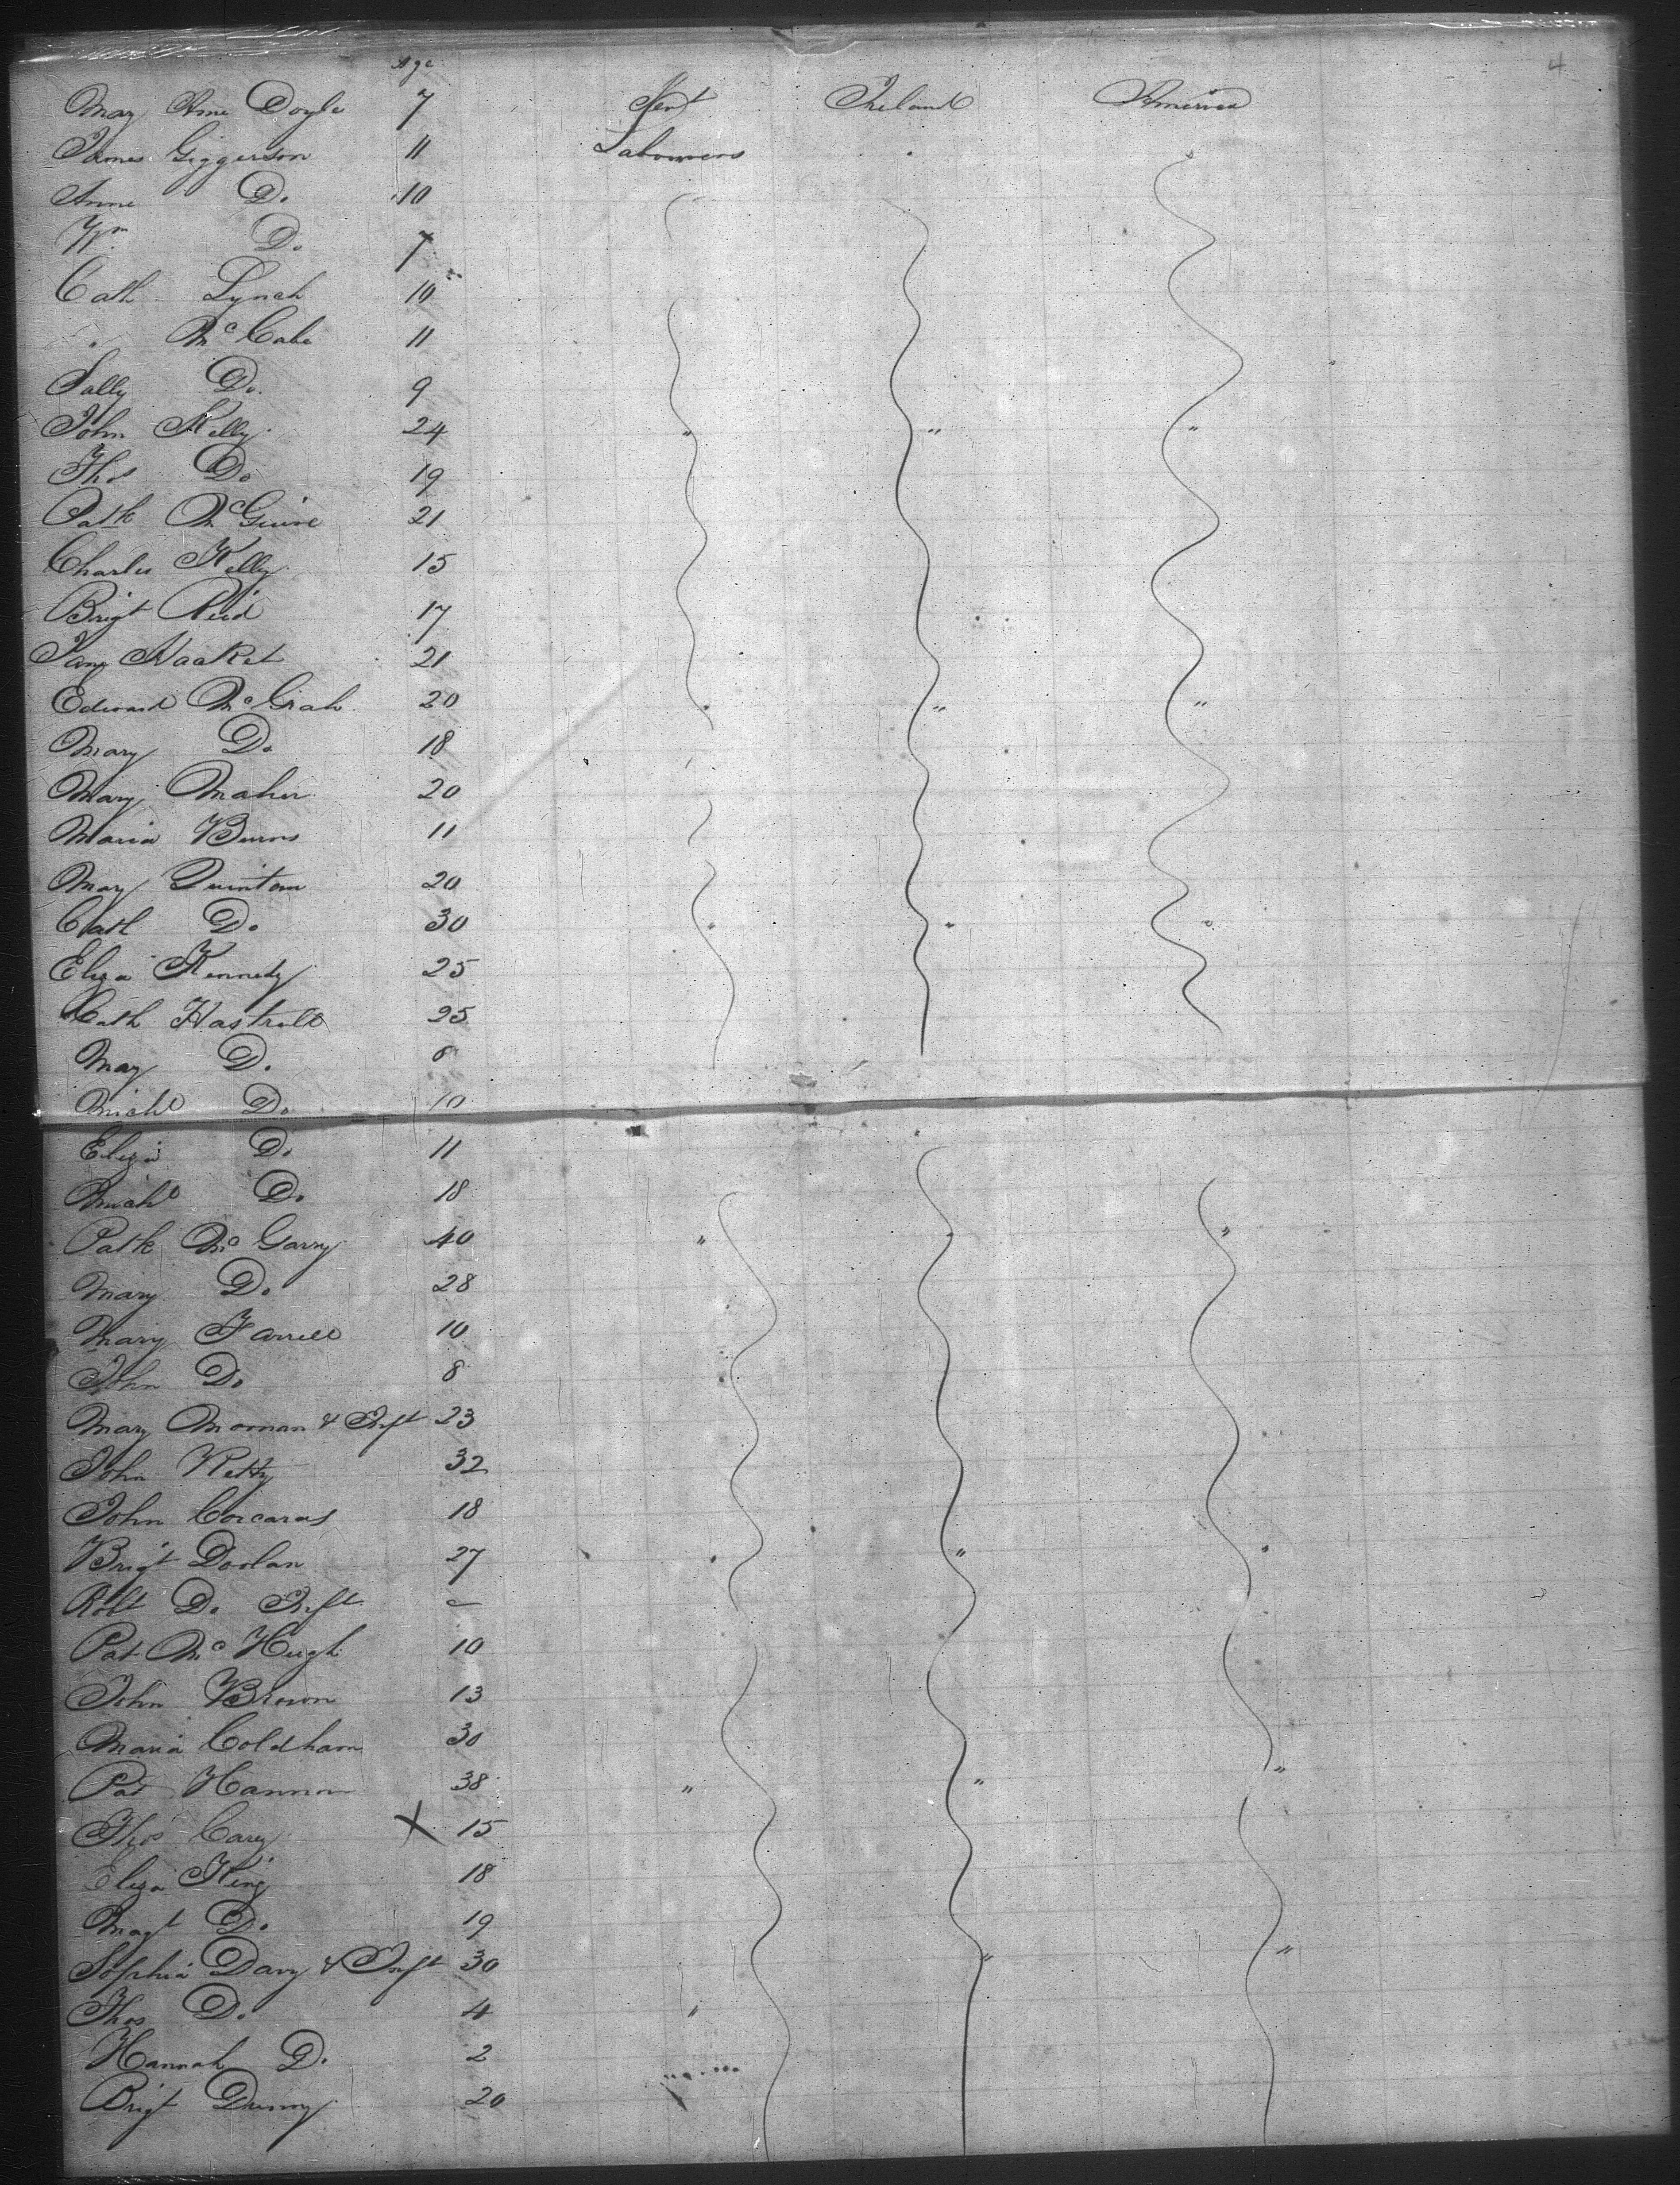 4
Age
Mary Anne Doyle 7 Ireland America
James Giggerson 11 Labourers
Anne Do 10
Wm Do 7
Cath Lynch 10
" McCabe 11
Sally Do. 9
John Kelly 24 " " "
Thos Do 19
Patk McGuire 21
Charles Kelly 15
Brigt Reid 17
Hacket 21
Edward McGrah 20 " " "
Mary Do 18
Mary Maher 20
Maria Burns 11
Mary Quintom 20
Cath Do 30 " " "
Eliza Kennedy 25
Cath 25
Mary Do. 8
Michl Do. 10
Eliza Do. 11
Michl Do. 18
Patk McGarry 40 " "
Mary Do. 28
Mary Farrell 10
John Do 8
Mary Mornan & Inft 23
John Ketty 32
John Corcaras 18
Brigt Doolan 27 " " "
Robt Do Inft -
Pat McHugh 10
John Brown 13
Maria Coldham 30
Pat Hannon 38 " " "
Thos Carey X 15
Eliza King 18
Magt Do. 19
Sophia Davy & Inft 30 " "
Thos Do. 4 "
Hannah Do. 2
Brigt 20